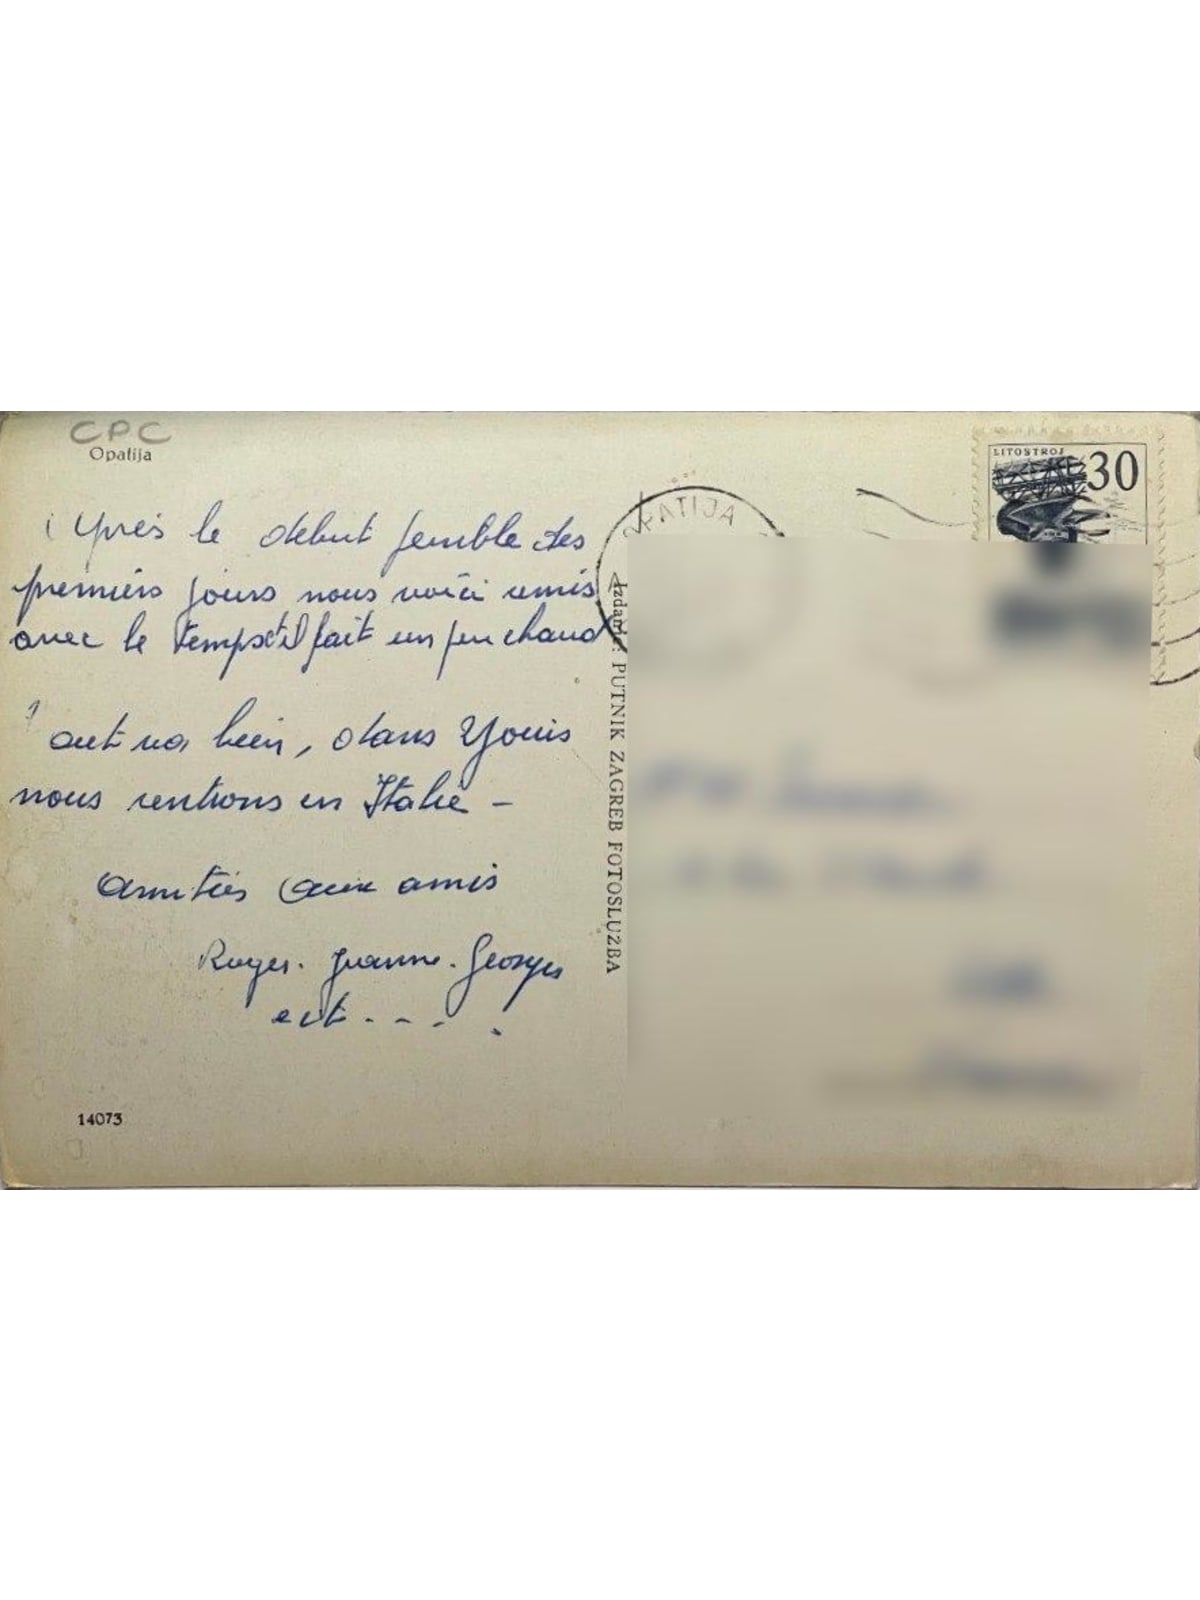 CPC
Opatija
Après le début pénible des
premiers jours nous voici amis
avec le temps et il fait un peu chaud
Tout va bien, dans 2 jours
nous rentrons en Italie -
Amitiés aux amis
Roger. Jeanne. Georges
ect - - - .
14073
Izdanje: PUTNIK ZAGREB FOTOSLUŽBA
OPATIJA
LITOSTROJ
30